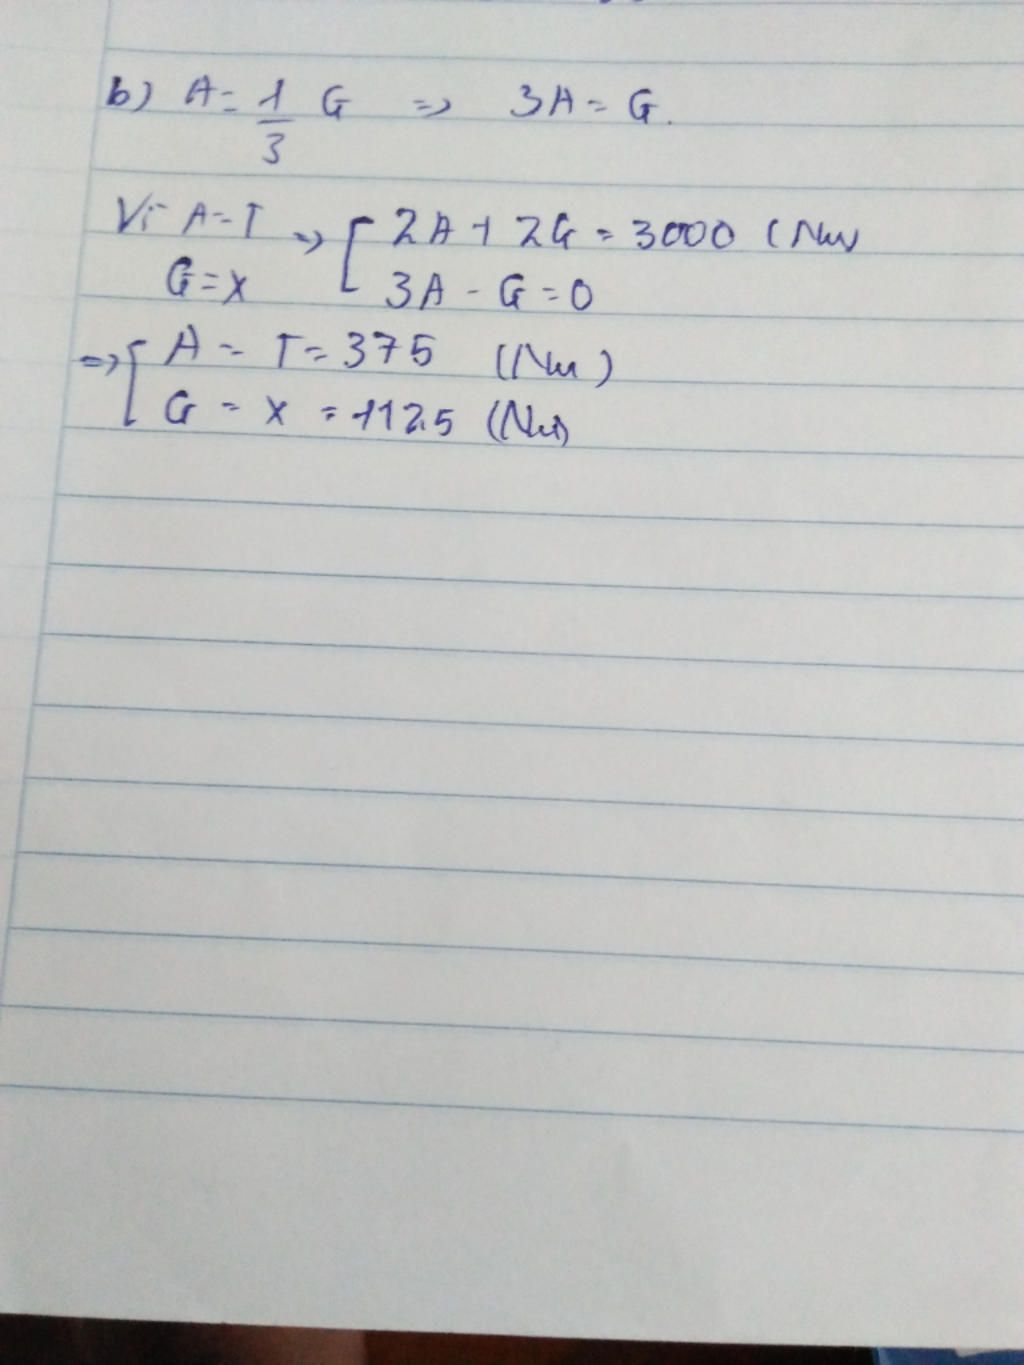 b) A = 1/3 G => 3A = G.
Vì A = T => [ 2A + 2G = 3000 (Nu)
G = X [ 3A - G = 0
=> [ A = T = 375 (Nu)
[ G = X = 1125 (Nu)